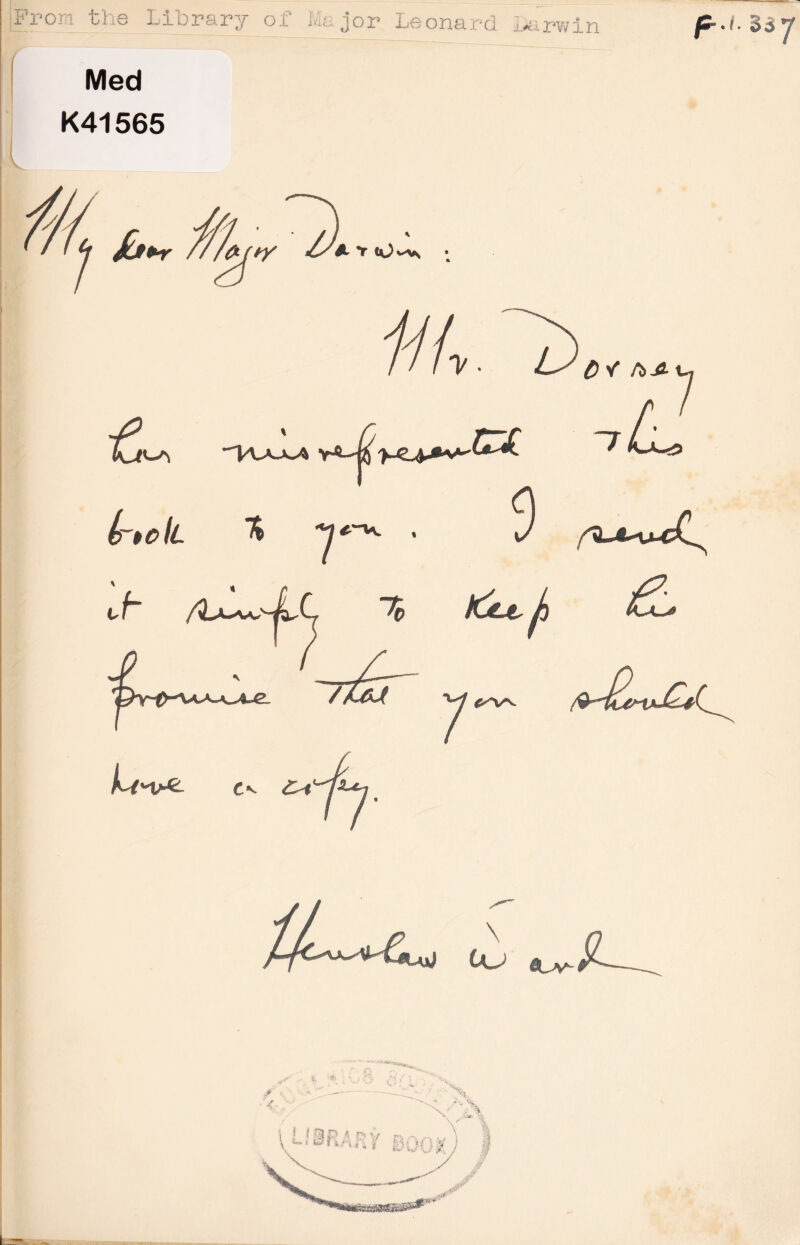 From the Library of Major Leonard Darwin
F.1.337
Med
K41565
My dear Major Darwin:
Mr. Dorsey
has misrepresented this
book to you. I send
it simply to keep his
promise that you should
have a copy.
Henshaw Ward
EUGENICS SOCIETY
LIBRARY BOOK